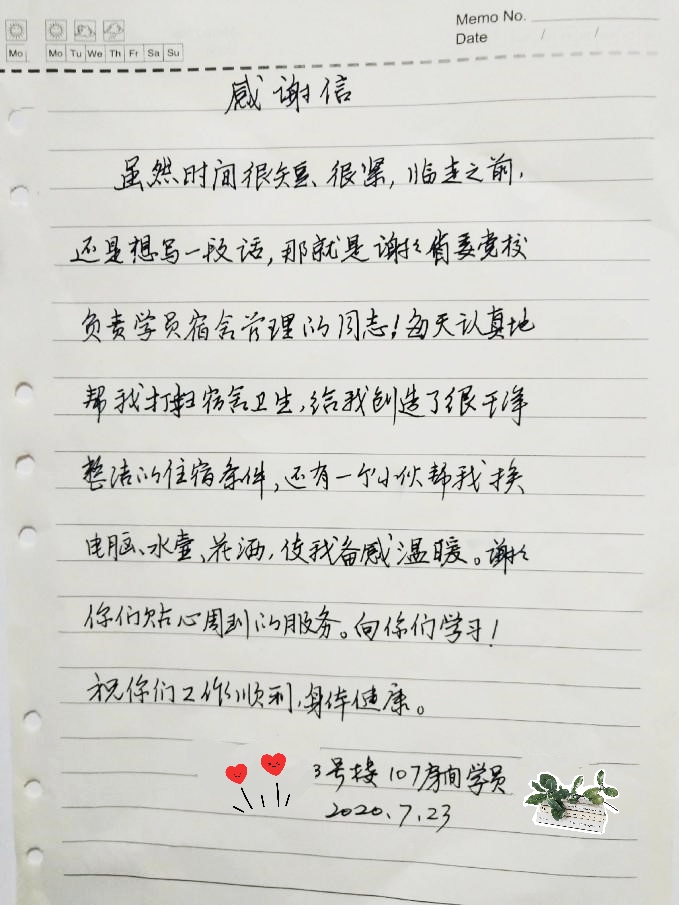 Memo No.
Date / /
Mo Mo Tu We Th Fr Sa Su
感谢信
虽然时间很短、很紧,临走之前,
还是想写一段话,那就是谢谢省委党校
负责学员宿舍管理的同志!每天认真地
帮我打扫宿舍卫生,给我创造了很干净
整洁的住宿条件,还有一个小伙帮我换
电脑、水壶、花洒,使我备感温暖。谢谢
你们贴心周到的服务。向你们学习!
祝你们工作顺利,身体健康。
3号楼107房间学员
2020.7.23